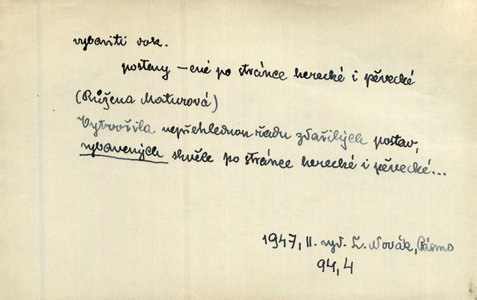 vybaviti dok.
postavy –ené po stránce herecké i pěvecké
(Růžena Maturová)
Vytvořila nepřehlednou řadu zdařilých postav,
vybavených skvěle po stránce herecké i pěvecké...
1947, II. vyd. L. Novák,
94, 4